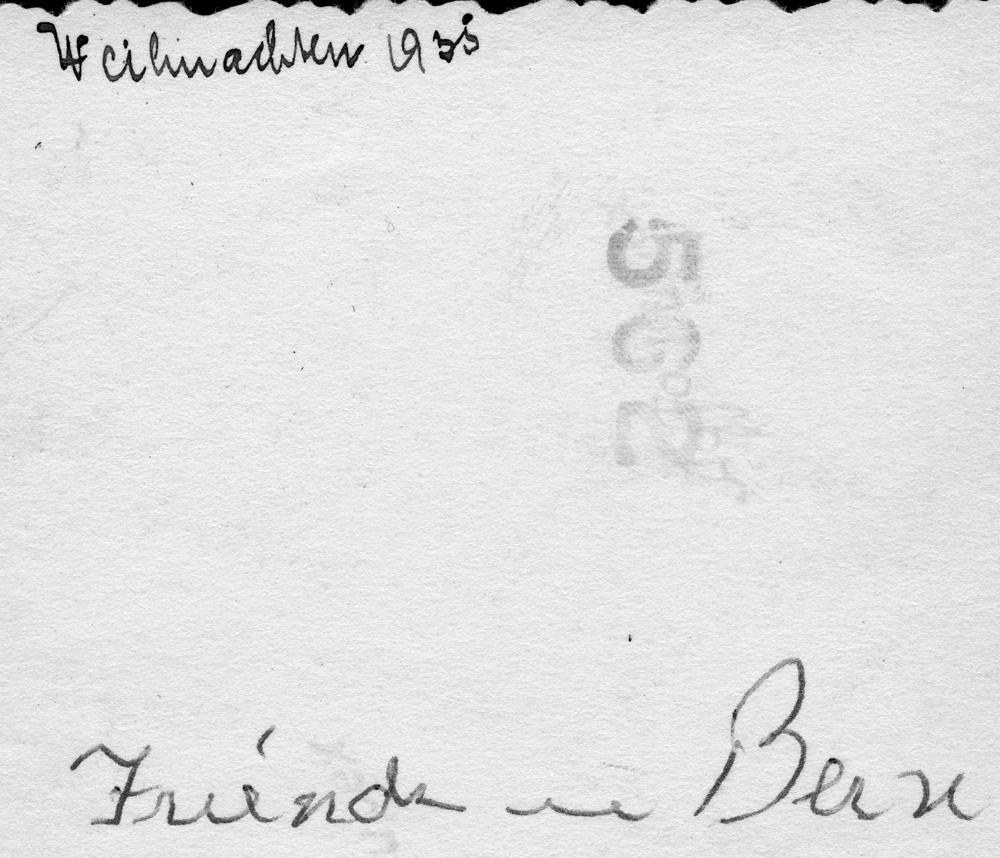 Weihnachten 1935
502
Friends in Bern